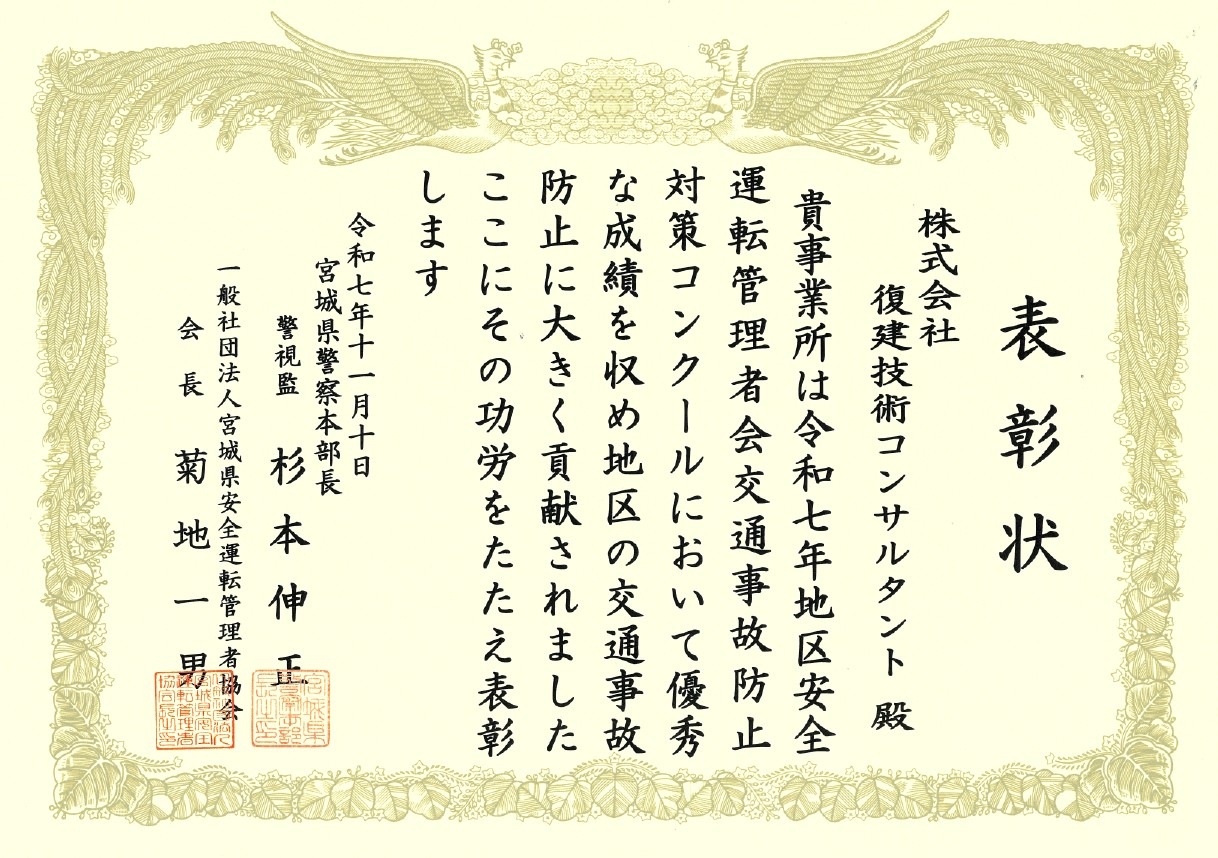 表彰状
株式会社
復建技術コンサルタント 殿
貴事業所は令和七年地区安全
運転管理者会交通事故防止
対策コンクールにおいて優秀
な成績を収め地区の交通事故
防止に大きく貢献されました
ここにその功労をたたえ表彰
します
令和七年十一月十日
宮城県警察本部長
警視監 杉本伸正
一般社団法人宮城県安全運転管理者協会
会長 菊地一男